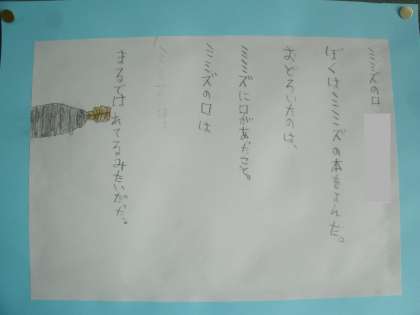 ミミズの口
ぼくはミミズの本をよんだ。
おどろいたのは、
ミミズに口があったこと。
ミミズの口は
まるではれてるみたいだった。